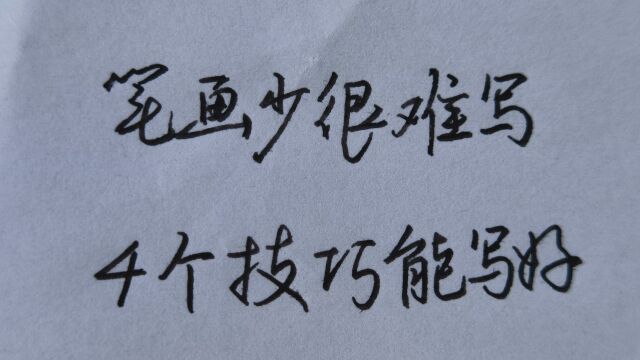 笔画少很难写
4个技巧能写好